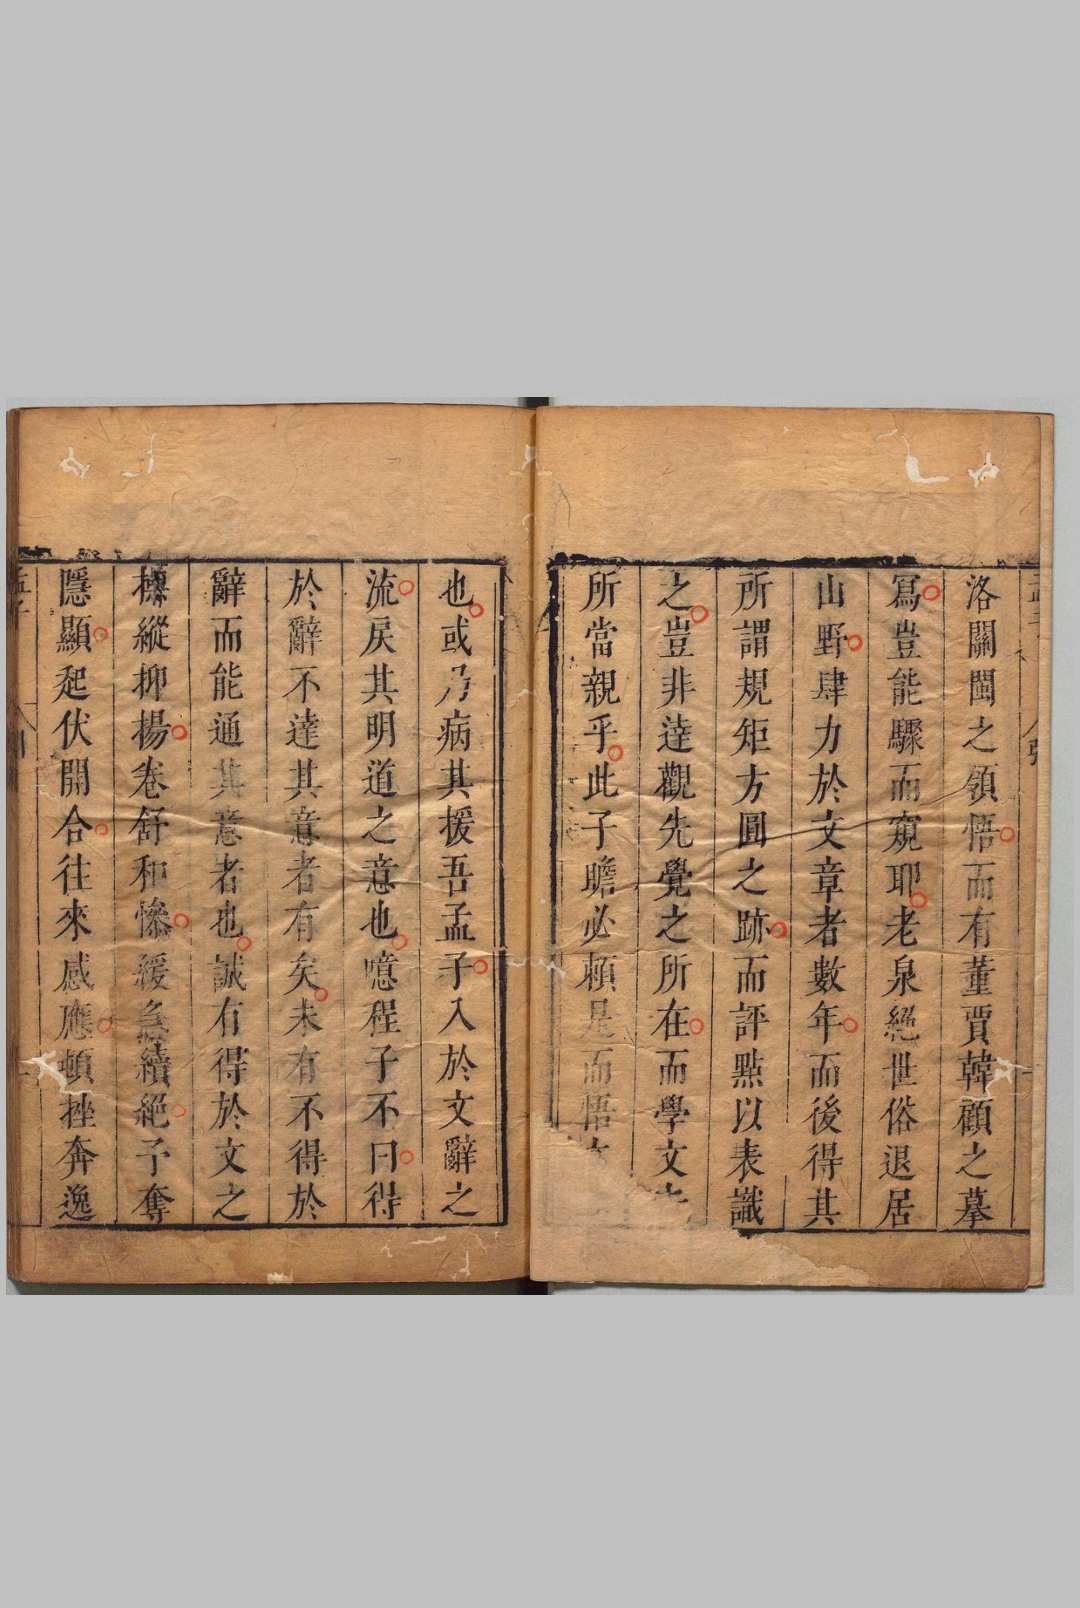 洛關閩之領悟而有董賈韓顧之摹
寫豈能驟而窺耶老泉絕世俗退居
山野肆力於文章者數年而後得其
所謂規矩方圓之跡而評點以表識
之豈非達觀先覺之所在而學文
所當親乎此子瞻必頼是而悟
也或乃病其援吾孟子入於文辭之
流戾其明道之意也噫程子不曰得
於辭不達其意者有矣未有不得於
辭而能通其意者也誠有得於文之
縱抑揚卷舒和慘緩急續絕予奪
隱顯起伏開合往來感應頓挫奔逸